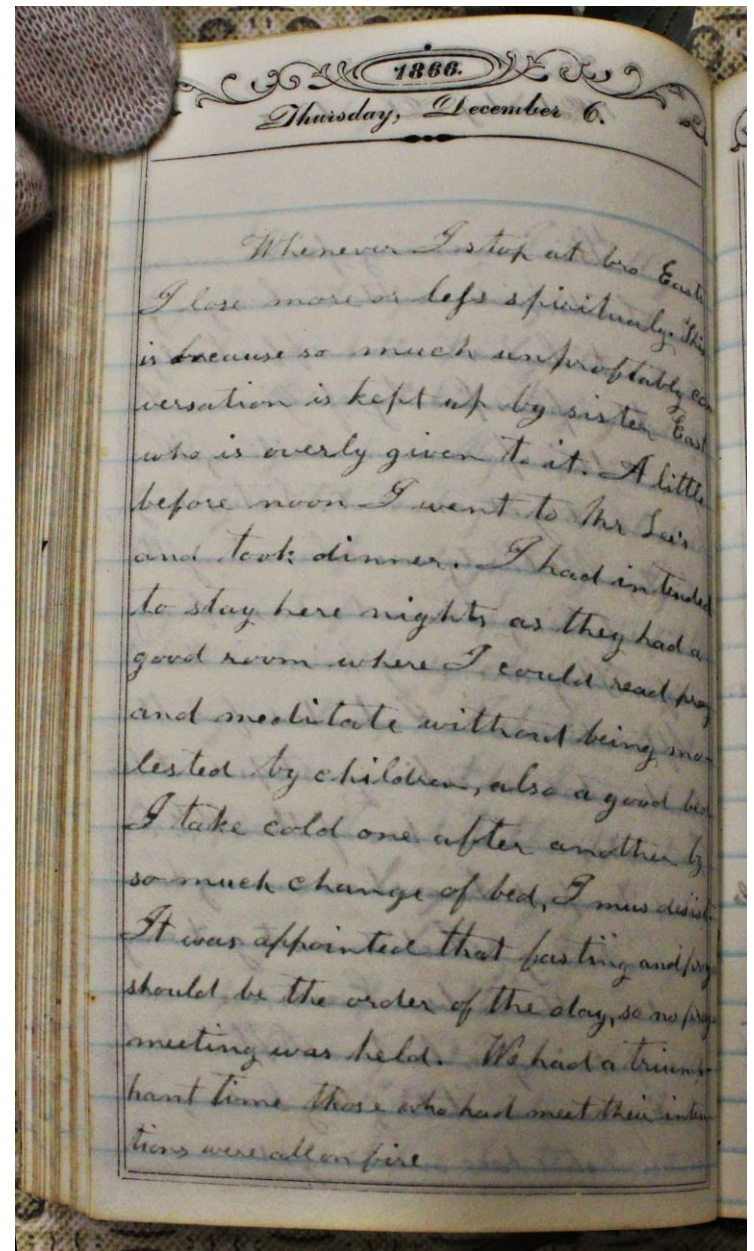 1866.
Thursday, December 6.
Whenever I stop at bro East
I lose more or less spiritualy. This
is because so much unprofitably con
versation is kept up by sister East
who is overly given to it. A little
before noon I went to Mr Lee's
and took dinner. I had intended
to stay here nights as they had a
good room where I could read pray
and meditate without being mo-
lested by children, also a good bed
I take cold one after another by
so much change of bed, I mus desist
It was appointed that fasting and pray
should be the order of the day, so no pray
meeting was held. We had a trium-
hant time those who had meet their inten
tions were all on fire